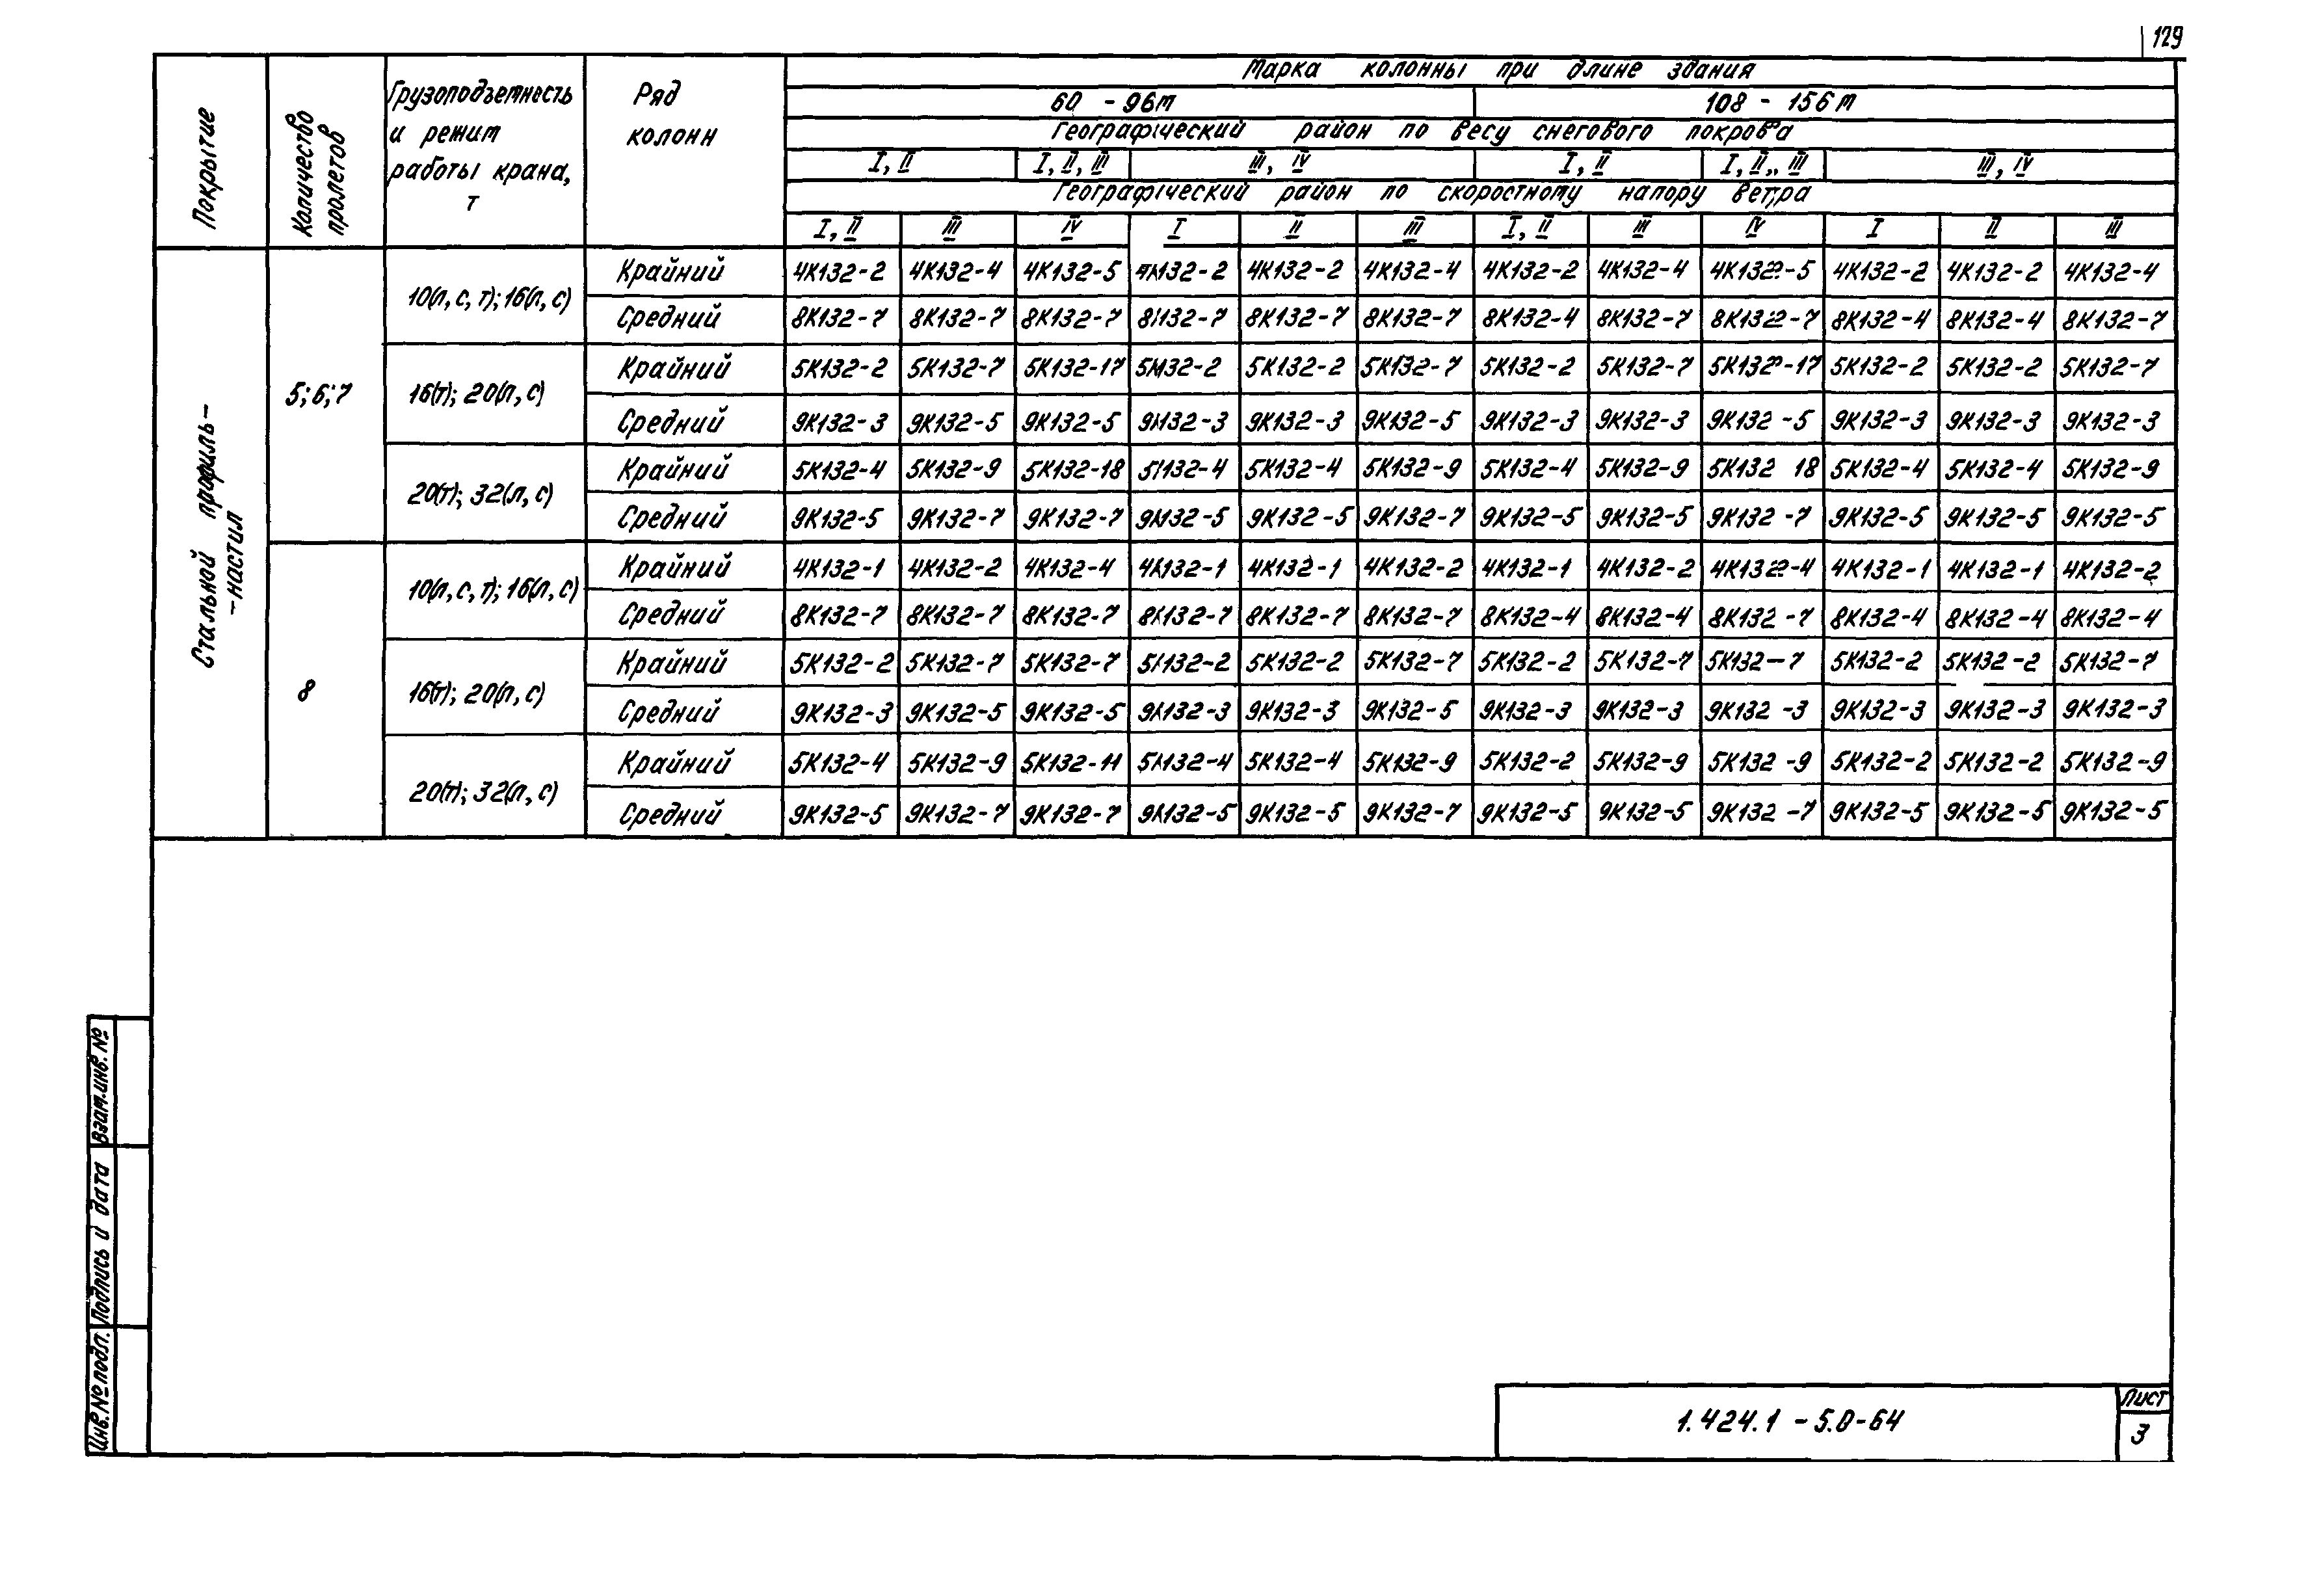 129
Покрытие
Количество пролетов
Грузоподъемность и режим работы крана, т
Ряд колонн
Марка колонны при длине здания
60 - 96м 108 - 156м
Географический район по весу снегового покрова
I, II I, II, III III, IV I, II I, II, III III, IV
Географический район по скоростному напору ветра
I, II III IV I II III I, II III IV I II III
Стальной профиль-
-настил
5; 6; 7
10(л, с, т); 16(л, с)
Крайний 4К132-2 4К132-4 4К132-5 4К132-2 4К132-2 4К132-4 4К132-2 4К132-4 4К132-5 4К132-2 4К132-2 4К132-4
Средний 8К132-7 8К132-7 8К132-7 8К132-7 8К132-7 8К132-7 8К132-4 8К132-7 8К132-7 8К132-4 8К132-4 8К132-7
16(т); 20(л, с)
Крайний 5К132-2 5К132-7 5К132-17 5К132-2 5К132-2 5К132-7 5К132-2 5К132-7 5К132-17 5К132-2 5К132-2 5К132-7
Средний 9К132-3 9К132-5 9К132-5 9К132-3 9К132-3 9К132-5 9К132-3 9К132-3 9К132-5 9К132-3 9К132-3 9К132-3
20(т); 32(л, с)
Крайний 5К132-4 5К132-9 5К132-18 5К132-4 5К132-4 5К132-9 5К132-4 5К132-9 5К132 18 5К132-4 5К132-4 5К132-9
Средний 9К132-5 9К132-7 9К132-7 9К132-5 9К132-5 9К132-7 9К132-5 9К132-5 9К132-7 9К132-5 9К132-5 9К132-5
8
10(л, с, т); 16(л, с)
Крайний 4К132-1 4К132-2 4К132-4 4К132-1 4К132-1 4К132-2 4К132-1 4К132-2 4К132-4 4К132-1 4К132-1 4К132-2
Средний 8К132-7 8К132-7 8К132-7 8К132-7 8К132-7 8К132-7 8К132-4 8К132-4 8К132-7 8К132-4 8К132-4 8К132-4
16(т); 20(л, с)
Крайний 5К132-2 5К132-7 5К132-7 5К132-2 5К132-2 5К132-7 5К132-2 5К132-7 5К132-7 5К132-2 5К132-2 5К132-7
Средний 9К132-3 9К132-5 9К132-5 9К132-3 9К132-3 9К132-5 9К132-3 9К132-3 9К132-3 9К132-3 9К132-3 9К132-3
20(т); 32(л, с)
Крайний 5К132-4 5К132-9 5К132-11 5К132-4 5К132-4 5К132-9 5К132-2 5К132-9 5К132-9 5К132-2 5К132-2 5К132-9
Средний 9К132-5 9К132-7 9К132-7 9К132-5 9К132-5 9К132-7 9К132-5 9К132-5 9К132-7 9К132-5 9К132-5 9К132-5
Взам.инв.№
Подпись и дата
Инв.№подл.
1.424.1-5.0-64
Лист
3